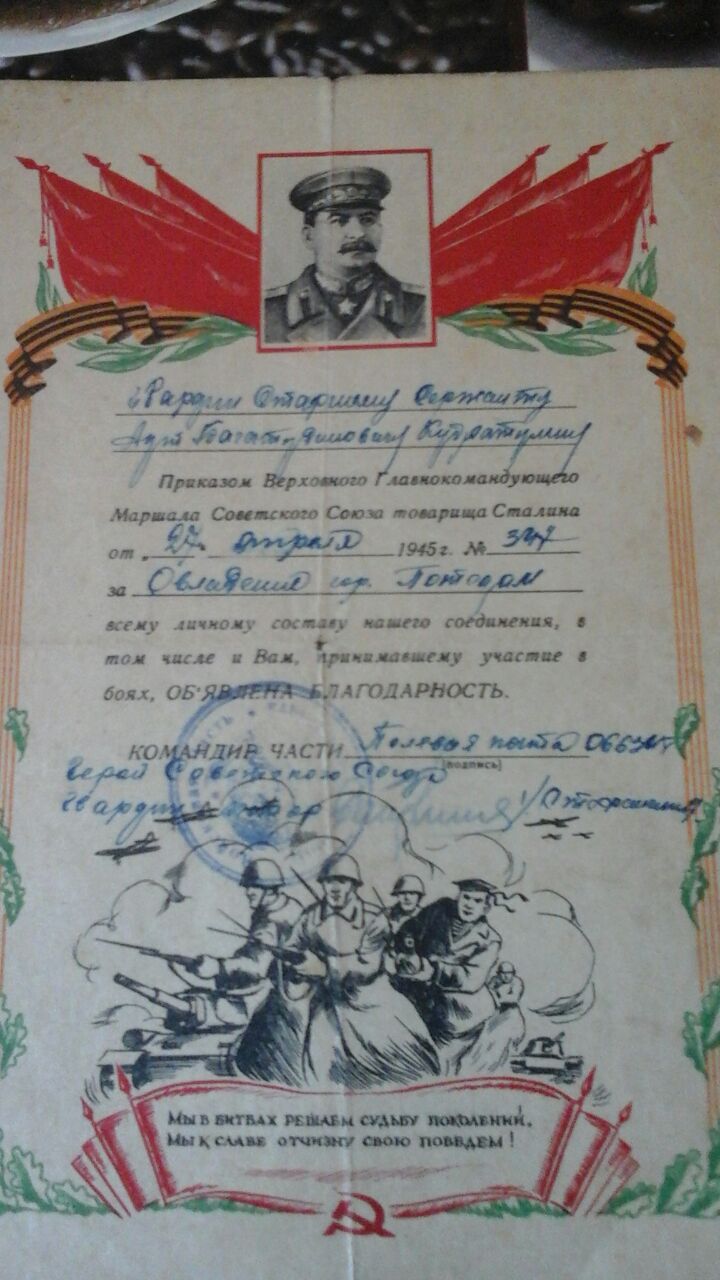 Гвардии Старшему Сержанту
Кудратулину
Приказом Верховного Главнокомандующего
Маршала Советского Союза товарища Сталина
от „27" апреля 1945 г. № 347
за Овладение гор. Потсдам
всему личному составу нашего соединения, в
том числе и Вам, принимавшему участие в
боях, ОБ'ЯВЛЕНА БЛАГОДАРНОСТЬ.
КОМАНДИР ЧАСТИ Полевая почта
(подпись)
Герой Советского Союза
Гвардии
Мы в битвах решаем судьбу поколений,
Мы к славе отчизну свою поведем!